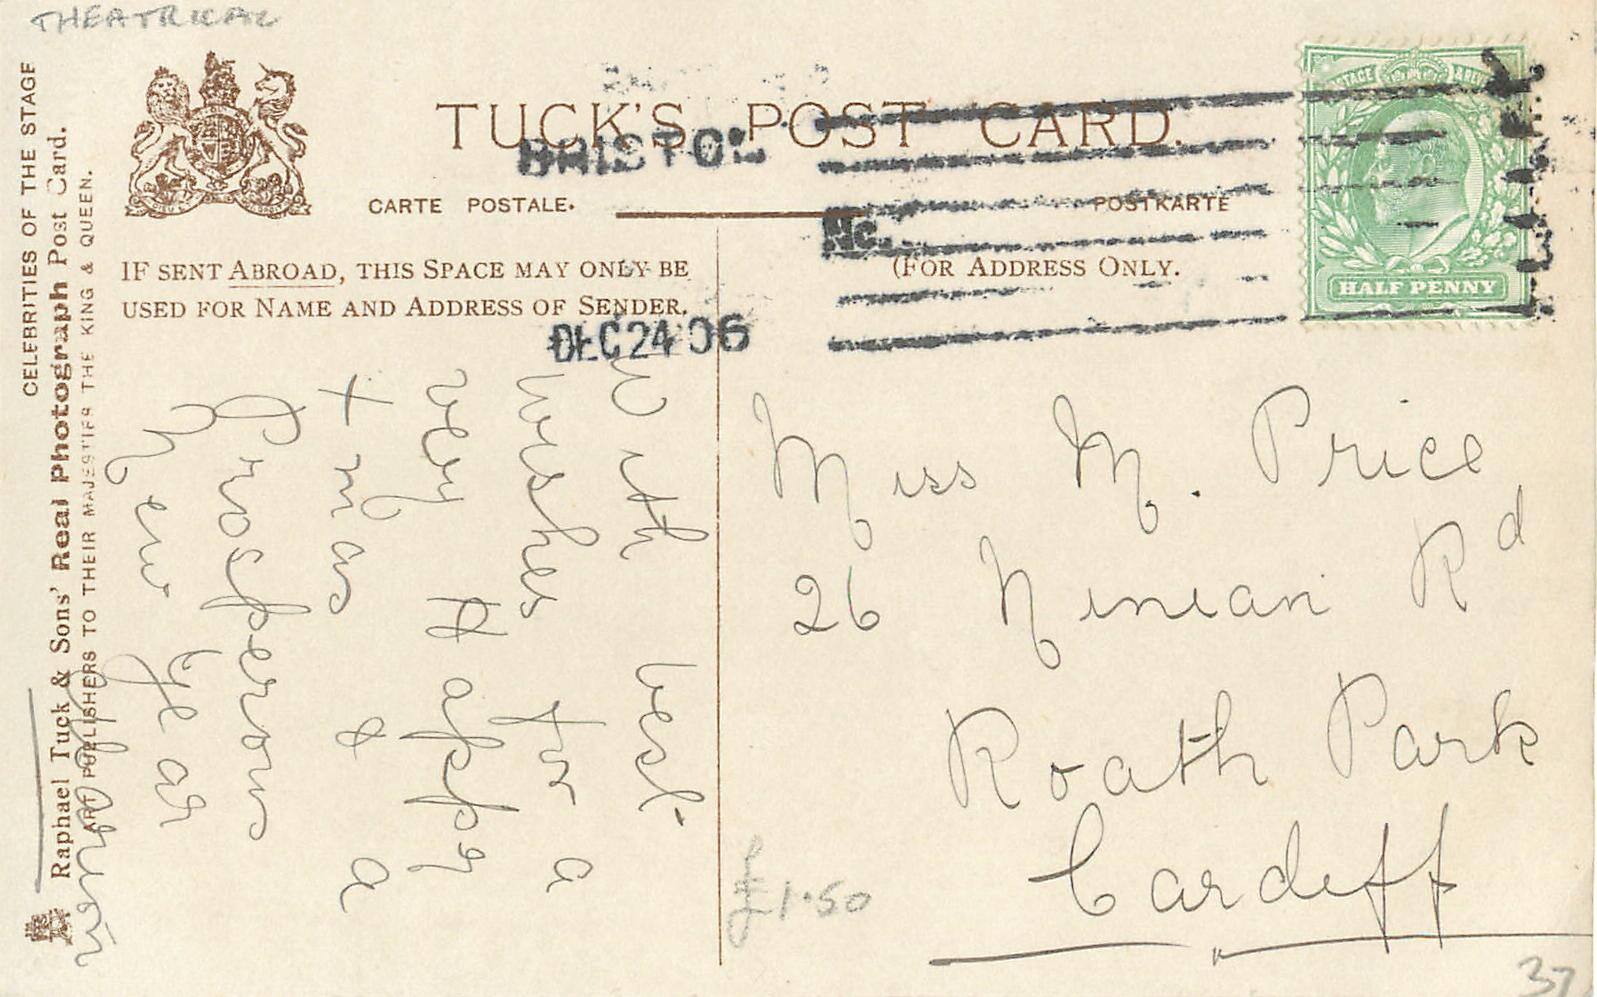 THEATRICAL
TUCK'S POST CARD.
BRISTOL
CARTE POSTALE.
POSTKARTE
No.
POSTAGE & REVENUE
HALF PENNY
IF SENT ABROAD, THIS SPACE MAY ONLY BE
USED FOR NAME AND ADDRESS OF SENDER.
(FOR ADDRESS ONLY.
DEC 24 06
CELEBRITIES OF THE STAGE
Raphael Tuck & Sons' Real Photograph Post Card.
ART PUBLISHERS TO THEIR MAJESTIES THE KING & QUEEN.
With best
wishes for a
very Happy
Xmas & a
Prosperous
New Year
Miss M. Price
26 Ninian Rd
Roath Park
Cardiff
£1.50
37